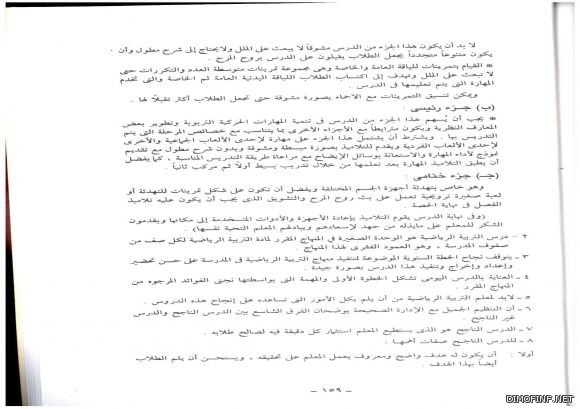 لا بد أن يكون هذا الجزء من الدرس مشوقاً لا يبعث على الملل ولا يحتاج إلى شرح مطول وأن
يكون متنوعاً متجدداً يجعل الطلاب يقبلون على الدرس بروح المرح .
* القيام بتمرينات للياقة العامة والخاصة وهى مجموعة تمرينات متوسطة العدد والتكرارات حتى
لا تبعث على الملل وتهدف إلى اكتساب الطلاب اللياقة البدنية العامة ثم الخاصة والتى تخدم
المهارة التى يتم تعليمها فى الدرس .
ويمكن تنسيق التمرينات مع الاحماء بصورة مشوقة حتى تجعل الطلاب أكثر تقبلاً لها .
(ب) جـزء رئيسى :
* يجب أن يسهم هذا الجزء من الدرس فى تنمية المهارات الحركية التربوية وتطوير بعض
المعارف النظرية ويكون مترابطاً مع الأجزاء الأخرى بما يتناسب مع خصائص المرحلة التى يتم
التدريس بها . ويشترط أن يشتمل هذا الجزء على مهارة لإحدى الألعاب الجماعية والأخرى
لإحدى الألعاب الفردية ويقدم للتلاميذ بصورة مبسطة ومشوقة وبدون شرح مطول مع تقديم
نموذج لأداء المهارة والاستعانة بوسائل الإيضاح مع مراعاة طريقة التدريس المناسبة ، كما يفضل
أن يطبق التلاميذ المهارة بعد تعلمها من خلال تدريب بسيط أولاً ثم مركب ثانياً .
(جـ) جزء ختامى :
وهو خاص بتهدئة أجهزة الجسم المختلفة ويفضل أن تكون على شكل تمرينات للتهدئة أو
لعبة صغيرة ترويحية تعمل على بث روح المرح والتشويق الذى يجب أن يكون عليه تلاميذ
الفصل فى نهاية الحصة .
(وفى نهاية الدرس يقوم التلاميذ بإعادة الأجهزة والأدوات المستخدمة إلى مكانها ويقدمون
الشكر للمعلم على مابذله من جهد لإسعادهم ويبادلهم المعلم التحية نفسها) .
٢ – درس التربية الرياضية هو الوحدة الصغيرة فى المنهاج المقرر لمادة التربية الرياضية لكل صف من
صفوف المدرسة ، وهو العمود الفقرى لهذا المنهاج .
٣ – يتوقف نجاح الخطة السنوية الموضوعة لتنفيذ منهاج التربية الرياضية فى المدرسة على حسن تحضير
وإعداد وإخراج وتنفيذ هذا الدرس بصورة جيدة .
٤ – العناية بالدرس اليومى تشكل الخطوة الأولى والمهمة التى بواسطتها نجنى الفوائد المرجوه من
المنهاج المقرر .
٥ – لابد لمعلم التربية الرياضية من أن يلم بكل الأمور التى تساعده على إنجاح هذه الدروس .
٦ – أن التنظيم الجميل مع الإدارة الصحيحة يوضحان الفرق الشاسع بين الدرس الناجح والدرس
غير الناجح .
٧ – الدرس الناجح هو الذى يستطيع المعلم استثمار كل دقيقة فيه لصالح طلابه .
٨ – للدرس الناجح صفات أهمها :
أولا : أن يكون له هدف واضح ومعروف يعمل المعلم على تحقيقه ، ويستحسن أن يلم الطلاب
أيضاً بهذا الهدف .
– ١٥٩ –
DIMOFINF.NET